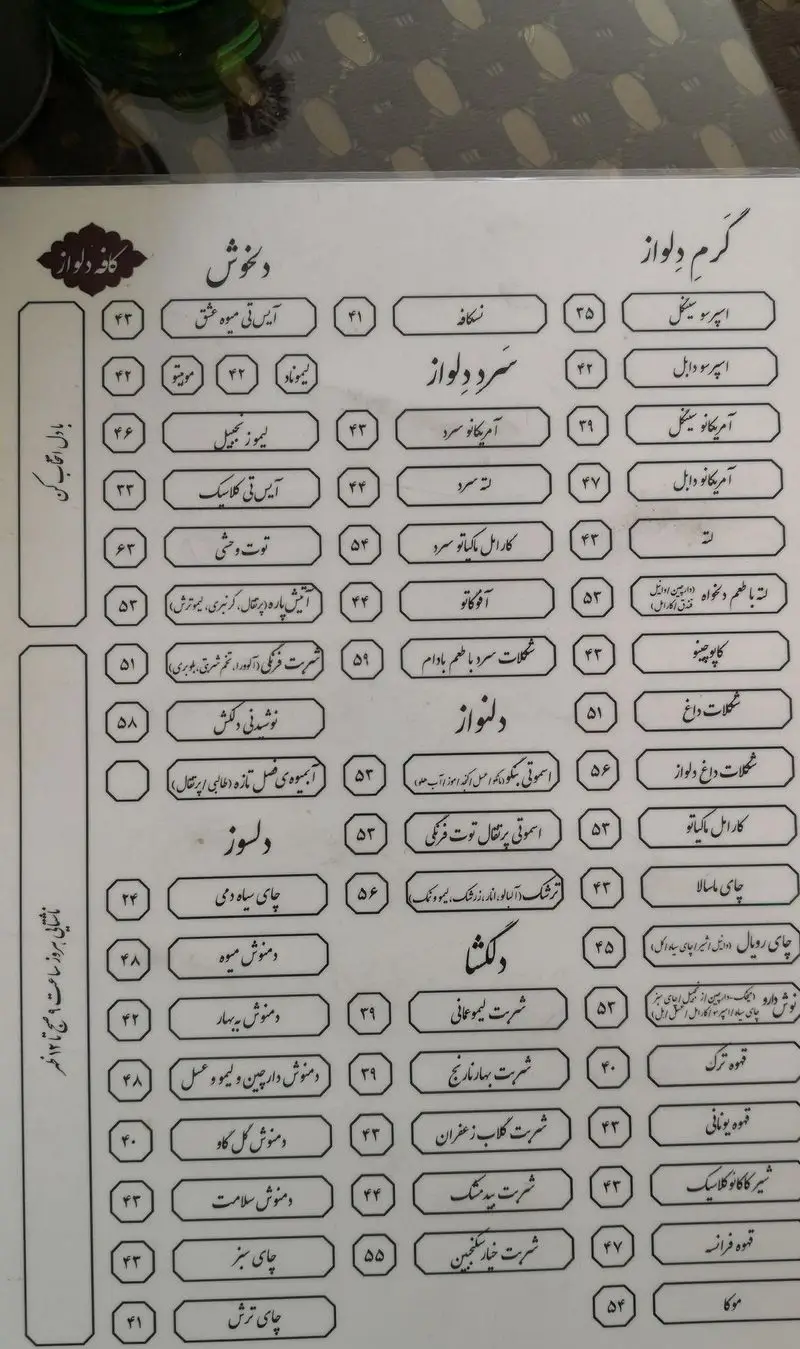 کافه دلواز
گرمِ دِلواز
اسپرسو سینگل ۳۵
اسپرسو دابل ۴۲
آمریکانو سینگل ۳۹
آمریکانو دابل ۴۷
لته ۴۳
لته با طعم دلخواه (دارچین/وانیل فندق/کارامل) ۵۳
کاپوچینو ۴۳
شکلات داغ ۵۱
شکلات داغ دلواز ۵۶
کارامل ماکیاتو ۵۳
چای ماسالا ۴۳
چای رویال ۴۵
نوش دارو ۵۳
قهوه ترک ۴۰
قهوه یونانی ۴۳
شیر کاکائو کلاسیک ۴۳
قهوه فرانسه ۴۷
موکا ۵۴
نسکافه ۴۱
سَردِ دِلواز
آمریکانو سرد ۴۳
لته سرد ۴۴
کارامل ماکیاتو سرد ۵۴
آفوگاتو ۴۴
شکلات سرد با طعم بادام ۵۹
دلنواز
اسموتی ۵۳
اسموتی پرتقال توت فرنگی ۵۳
ترشک (آلبالو، انار، زرشک، لیمو و نمک) ۵۶
دلگشا
شربت لیموعمانی ۳۹
شربت بهارنارنج ۳۹
شربت گلاب زعفران ۴۳
شربت بیدمشک ۴۴
شربت خیارسکنجبین ۵۵
دلخوش
آیس تی میوه عشق ۴۳
لیموناد ۴۲ موهیتو ۴۲
لیمو زنجبیل ۴۶
آیس تی کلاسیک ۳۳
توت وحشی ۶۳
آتیش پاره (پرتقال، کرنبری، لیموترش) ۵۳
شربت فرنگی (آلوورا، تخم شربتی، بلوبری) ۵۱
نوشیدنی دلکش ۵۸
آبمیوه‌ی فصل تازه (طالبی/پرتقال)
دلسوز
چای سیاه دمی ۲۴
دمنوش میوه ۴۸
دمنوش به بهار ۴۲
دمنوش دارچین و لیمو و عسل ۴۸
دمنوش گل گاو ۴۰
دمنوش سلامت ۴۳
چای سبز ۴۳
چای ترش ۴۱
با دل انتخاب کن
ناشتایی هر روز ساعت ۹ صبح تا ۱۲ ظهر